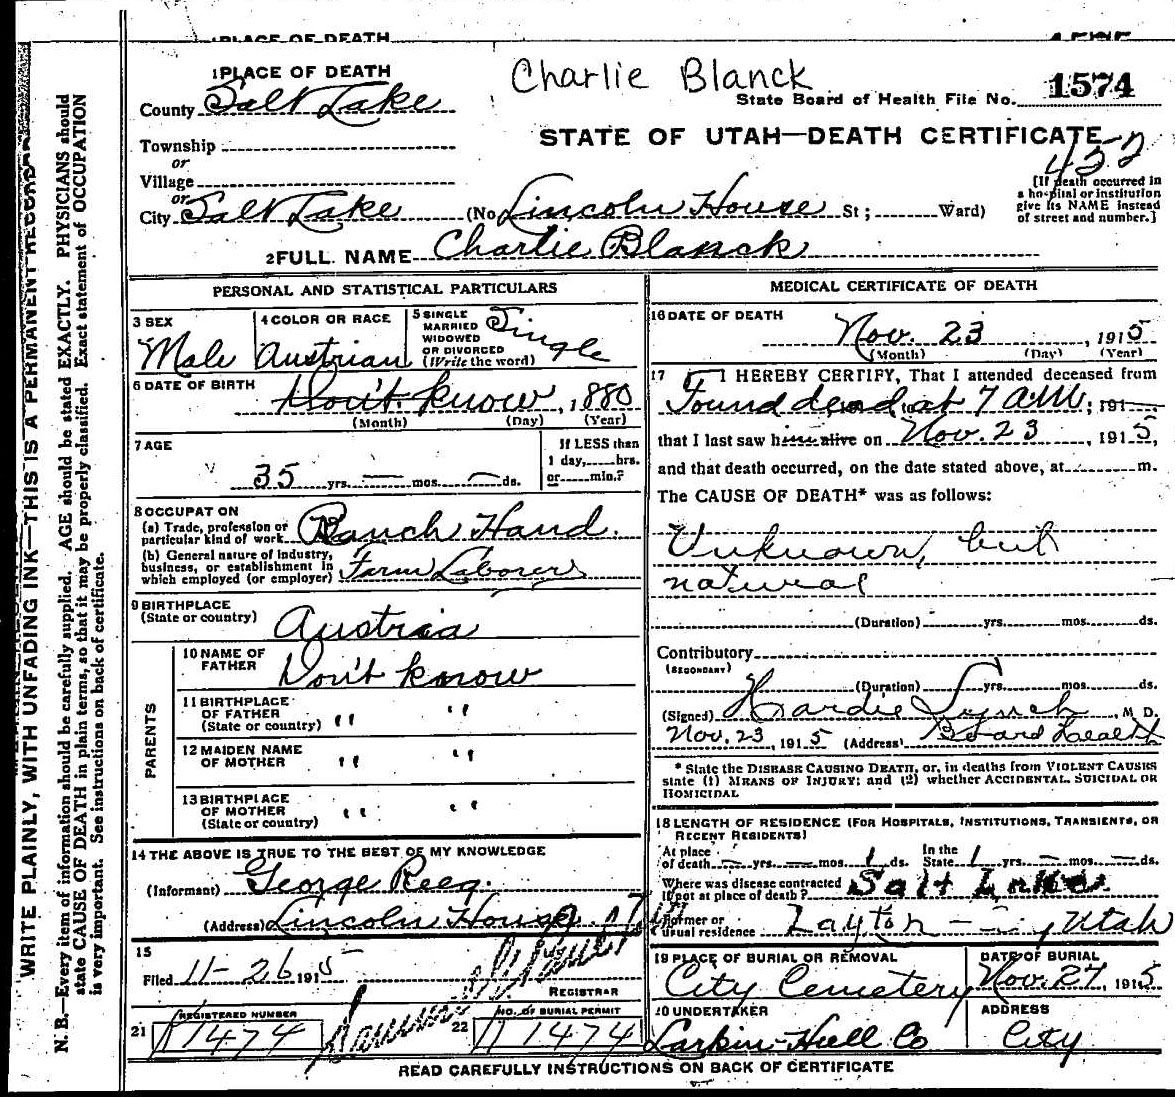 1 PLACE OF DEATH
Charlie Blanck
County Salt Lake
State Board of Health File No. 1574
Township
or
STATE OF UTAH—DEATH CERTIFICATE
422
Village
or
City Salt Lake (No. Lincoln House St; Ward)
[If death occurred in
a hospital or institution
give its NAME instead
of street and number.]
2 FULL NAME Charlie Blanck
PERSONAL AND STATISTICAL PARTICULARS
3 SEX
Male
4 COLOR OR RACE
Austrian
5 SINGLE
MARRIED
WIDOWED
OR DIVORCED
(Write the word)
Single
6 DATE OF BIRTH
Don't know, 1880
(Month) (Day) (Year)
7 AGE
35 yrs. — mos. — ds.
If LESS than
1 day, hrs.
or min.?
8 OCCUPATON
(a) Trade, profession or
particular kind of work Ranch Hand.
(b) General nature of industry,
business, or establishment in
which employed (or employer) Farm Laborer
9 BIRTHPLACE
(State or country) Austria
PARENTS
10 NAME OF
FATHER Don't know
11 BIRTHPLACE
OF FATHER
(State or country) " "
12 MAIDEN NAME
OF MOTHER " "
13 BIRTHPLACE
OF MOTHER
(State or country) " "
14 THE ABOVE IS TRUE TO THE BEST OF MY KNOWLEDGE
(Informant) George Reeg.
(Address) Lincoln House
15
Filed 11-26 1915
REGISTRAR
21 REGISTERED NUMBER
1474
22 NO. OF BURIAL PERMIT
1474
MEDICAL CERTIFICATE OF DEATH
16 DATE OF DEATH
Nov. 23, 1915
(Month) (Day) (Year)
17 I HEREBY CERTIFY, That I attended deceased from
Found dead at 7 A.M., 191
that I last saw him alive on Nov. 23, 1915,
and that death occurred, on the date stated above, at m.
The CAUSE OF DEATH* was as follows:
Unknown, but
natural
(Duration) yrs. mos. ds.
Contributory
(SECONDARY)
(Duration) yrs. mos. ds.
(Signed) Hardie Lynch, M D.
Nov. 23, 1915 (Address) Board Health
* State the DISEASE CAUSING DEATH, or, in deaths from VIOLENT CAUSES
state (1) MEANS OF INJURY; and (2) whether ACCIDENTAL, SUICIDAL OR
HOMICIDAL
18 LENGTH OF RESIDENCE (FOR HOSPITALS, INSTITUTIONS, TRANSIENTS, OR
RECENT RESIDENTS)
At place
of death — yrs. — mos. 1 ds.
In the
State 1 yrs. — mos. — ds.
Where was disease contracted
If not at place of death? Salt Lake
Former or
usual residence Layton Utah
19 PLACE OF BURIAL OR REMOVAL
City Cemetery
DATE OF BURIAL
Nov. 27, 1915
20 UNDERTAKER
Larkin-Hull Co
ADDRESS
City
READ CAREFULLY INSTRUCTIONS ON BACK OF CERTIFICATE
WRITE PLAINLY, WITH UNFADING INK—THIS IS A PERMANENT RECORD
N. B.—Every item of information should be carefully supplied. AGE should be stated EXACTLY. PHYSICIANS should
state CAUSE OF DEATH in plain terms, so that it may be properly classified. Exact statement of OCCUPATION
is very important. See instructions on back of certificate.